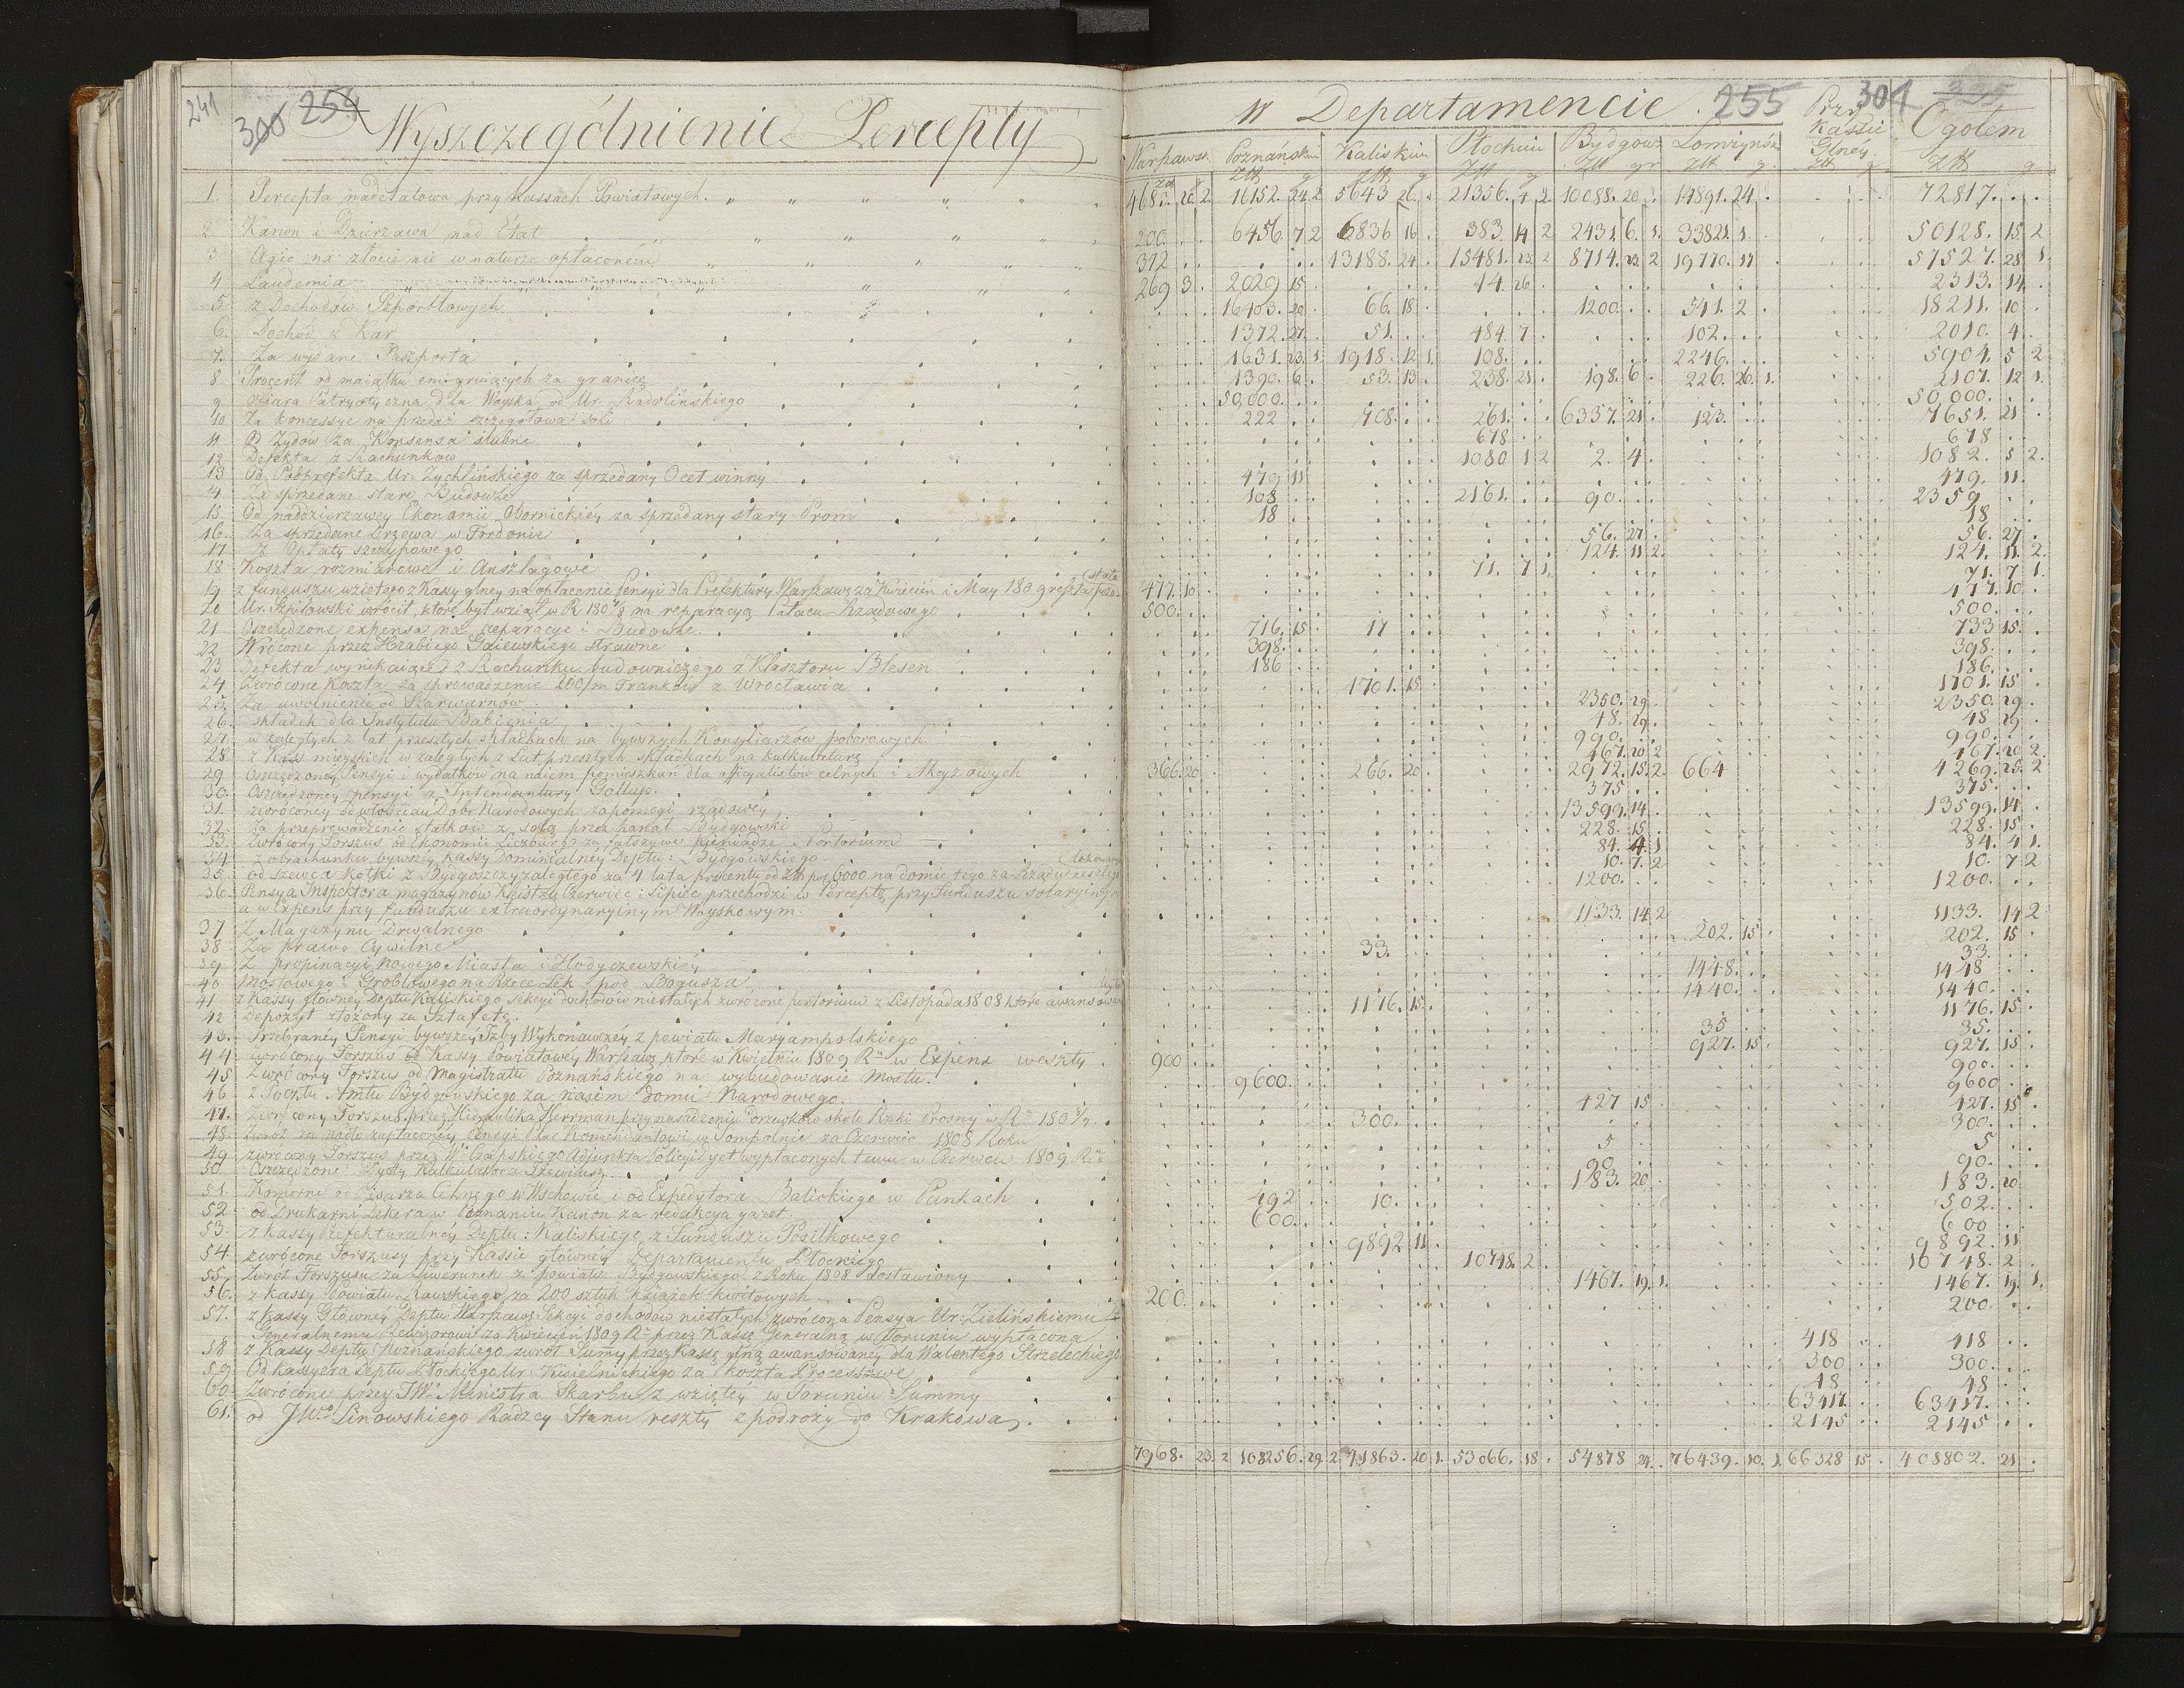 241 300 254
Wyszczególnienie Percepty
1. Percepta nadetatowa przy kassach Powiatowych
2 Kanon i Dzierzawa nad Etat
3 Agio na złocie nie w naturze opłaconem
4 Laudemia
5. z Dochodów Szportlowych
6. Dochod z Kar
7. Za wydane Paszporta
8 Procent od maiątku emigruiących za granicę
9 ofiara Patryotyczna dla Woyska od Ur. Kadolińskiego
10 Za koncessye na przedaż szczegółową soli
11 Od Zydow za Konsensa slubne
12 Defekta z Rachunkow
13 Od Podprefekta Ur. Zychlińskiego za sprzedany Ocet winny
14 Za sprzedane stare Budowle
15 Od naddzierzawcy Ekonomii Obornickiey za sprzedany stary Prom
16. Za sprzedane Drzewa w Fordonie
17 Z Opłaty szczypowego
18 Koszta rozmiarowe i Anszlagowe
19 z funduszu wziętego z Kassy głney na opłacenie Pensyi dla Prefektury Warszaws za Kwiecień i May 1809 reszta
20 Ur. Szpilowski wrócił, które był wziął w R 180⅞ na reparacyą Pałacu Rządowego
21 Oszczędzone expensa na reparacye i Budowle
22 Wrócone przez Hrabiego Gaiewskiego strawne
23 Defekta wynikaiące z Rachunku budowniczego z Klasztoru Blesen
24 Zwrócone Koszta za sprowadzenie 200/m Franków z Wrocławia
25. Za uwolnienie od Szarwarków
26. składek dla Instytutu Babienia
27. w zaległych z lat przeszłych składkach na bywszych Konsyliarzów poborowych
28 z Kass mieyskich w zaległych z Lat przeszłych składkach na kalkulaturę
29 Oszczędzoney Pensyi i wydatków na naiem pomieszkań dla officyalistow celnych i Akcyzowych
30. Oszczędzoney pensyi z Intendantury Gollup.
31. zwróconey od włościan Dobr Narodowych zapomogi rządowey
32. Za przeprowadzenie statków z solą przez kanał Bydgowski
33. Zwrócony Forszus od Ekonomii Liczburg za fałszywe pieniądze i Portorium
34 z obrachunku bywszey kassy Dominialney Deptu: Bydgowskiego
35. od szewca Kotki z Bydgoszczy zaległego za 4 lata procentu od zł pr 6000 na domie tego za Rządu zeszłego
36. Pensya Inspektora magazynow Kleista za Czerwiec i Lipiec przechodzi w Perceptę przy Funduszu solaryinym
a w Expens przy funduszu extraordynaryinym Woyskowym
37 Z Magazynu Drwalnego
38. Za prawo Cywilne
39 Z propinacyi Nowego Miasta i Hodyczewskiéy
40 Mostowego i Groblowego na Rzece Lek pod Bogusza
41 z Kassy główney Deptu Kaliskiego sekcyi dochodów niestałych zwrócone portorium z Listopada 1808 które awansowane
42 Depozyt złożony za Sztafetę.
43. Przebraney Pensyi bywszey Izby Wykonawczey z powiatu Maryampolskiego
44 zwrócony Forszus od Kassy Powiatowey Warszaws które w Kwietniu 1809 R w Expens weszły
45 Zwrócony Forszus od Magistratu Poznańskiego na wybudowanie Mostu.
46 z Pocztu Amtu Bydgowskiego za naiem Domu Narodowego.
47. Zwrócony Forszus przez Hydraulika Herrman przy nasadzeniu Drzewkow około Rzeki Prosny w R 180 8/9
48. Zwrot za nadto zapłaconey Pensyi Plac Komendantowi w Sompolnie za Czerwiec 1808 Roku
49 zwrócony Forszus przez W. Czapskiego Adjunkta Policyi Dyet wypłaconych temu w Czerwcu 1809 R
50. Oszczędzone Dyety Kalkulatora Szewiusz.
51. Komorne od Pisarza Celnego w Wschowie i od Expedytora Balickiego w Pankach
52. od Drukarni Dekera w Poznaniu Kanon za redakcyą gazet.
53. z Kassy Prefekturalney Deptu: Kaliskiego z Funduszu Posiłkowego
54. zwrócone Forszusy przy Kassie główney Departamentu Płockiego
55. Zwrot Forszusu za Liwerunek z powiatu Bydgowskiego z Roku 1808 dostawiony
56. z Kassy Powiatu Rawskiego za 200 sztuk książek kwitowych
57. z Kassy Główney Deptu Warszaws: Sekcyi dochodów niestałych zwrócona Pensya Ur. Zielińskiemu
Generalnemu Rewizorowi za Kwiecień 1809 R przez Kassę Generalną w Toruniu wypłacona
58. z Kassy Deptu Poznańskiego zwrot Summy przez Kassę głną awansowaney dla Walentego Strzeleckiego
59. Od Kassyera Deptu Płockiego Ur. Kisielnickiego za koszta Processowe
60. Zwrócone przez JW. Ministra Skarbu z wziętey w Toruniu Summy
61. od JWo Linowskiego Radzcy Stanu reszty z podroży do Krakowa
W Departamencie 255 301 335
Warszaws. Poznańskim Kaliskim Płockim Bydgows Łomżyńs Przy Kassie Głney Ogołem
Złt g Złt g Złt g Złt g Złt gr Złt g Złt g Złt g
4683. 20. 2 16152. 24 2 5643 26. 21356. 4 2. 10088. 20 14891. 24. 72817.
200. 6456. 7 2 6836 16 383. 14 2 2431. 6. 1. 33821. 1. 50128. 15. 2
372 13188. 24. 15481. 23. 2 8714. 23. 2 19770. 17 57527. 28 1.
269 3. 2029 15 14. 26 2313. 14.
16403. 20. 66. 18 1200. 541. 2 18211. 10
1372. 27. 51. 484. 7 102. 2010. 4.
1631. 23. 1. 1918. 12 1. 108. 2246. 5904. 5 2
1390. 6. 53. 13. 238. 21. 198. 6 226. 26. 1. 2107. 12 1.
50,000. 50,000.
222 708. 261. 6337. 21. 123. 7651. 21
678 678
1080 1 2 2. 4. 1082. 5 2.
479 11 479. 11.
108 2161. 90. 2359
18 18
56. 27. 56. 27
124. 11 2. 124. 11. 2.
71. 7 1. 71. 7 1.
477. 10 477. 10.
500. 500.
716. 15 17 733 15.
398. 398.
186 186.
1701. 15. 1701. 15
2350. 29. 2350. 29.
48. 29. 48 29
990. 990.
467. 20 2 467. 20 2
366. 20 266. 20 2972. 15. 2. 664 4269. 25. 2
375 375.
13599. 14. 13599. 14
228. 15. 228. 15
84. 4. 1 84. 4 1.
10. 7. 2 10. 7 2
1200. 1200.
1133. 14. 2 1133. 14 2
202. 15 202. 15
33. 33.
1448. 1448
1440. 1440.
1176. 15. 1176. 15
35 35.
927. 15. 927. 15.
900 900.
9600. 9600
427 15 427. 15
300. 300.
5 5
90 90.
183. 20 183. 20
492 10. 502.
600. 600
9892 11 9892. 11
10748. 2 10748. 2
1467. 19. 1. 1467. 19. 1.
200. 200.
418 418
300 300.
48 48
63417. 63417.
2145 2145
7968. 23. 2 108256. 29. 2 41863. 20 1. 53066. 18. 54878 24. 76439. 10. 1. 66328 15 408802. 21.